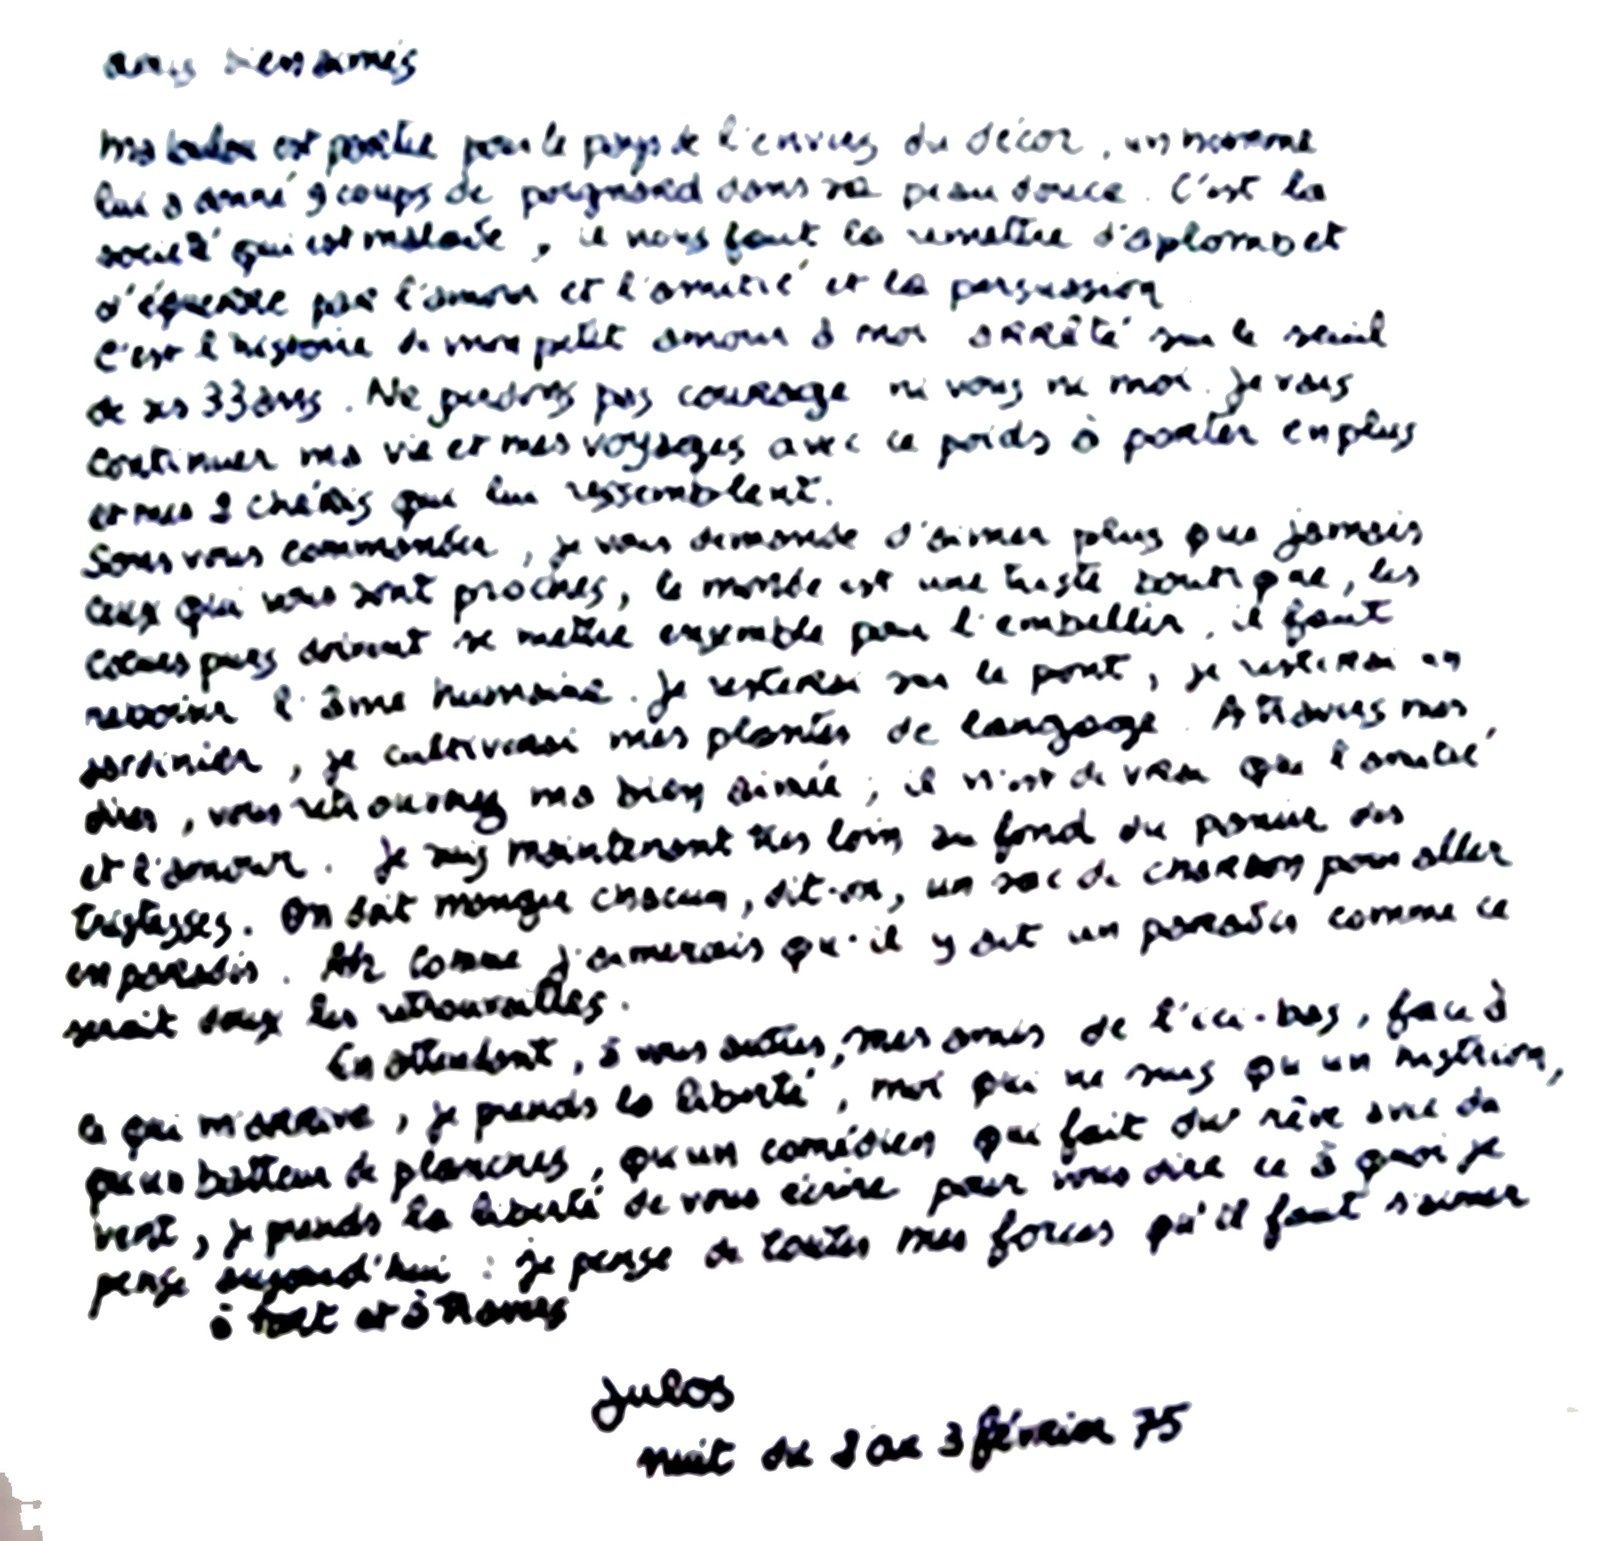 amis bien aimés
ma loulou est partie pour le pays de l'envers du décor, un homme
lui a donné 9 coups de poignard dans sa peau douce. C'est la
société qui est malade, il nous faut la remettre d'aplomb et
d'équerre par l'amour et l'amitié et la persuasion
C'est l'histoire de mon petit amour à moi arrêté sur le seuil
de ses 33 ans. Ne perdons pas courage ni vous ni moi. Je vais
continuer ma vie et mes voyages avec ce poids à porter en plus
et mes 2 chéris qui lui ressemblent.
Sans vous commander, je vous demande d'aimer plus que jamais
ceux qui vous sont proches, le monde est une triste boutique, les
coeurs purs doivent se mettre ensemble pour l'embellir, il faut
reboiser l'âme humaine. Je resterai sur le pont, je resterai un
jardinier, je cultiverai mes plantes de langage. A travers mes
dires, vous retrouverez ma bien aimée, il n'est de vrai que l'amitié
et l'amour. Je suis maintenant très loin au fond du panier des
tristesses. On doit manger chacun, dit-on, un sac de charbon pour aller
en paradis. Ah comme j'aimerais qu'il y ait un paradis comme ce
serait doux les retrouvailles.
En attendant, à vous autres, mes amis de l'ici-bas, face à
ce qui m'arrive, je prends la liberté, moi qui ne suis qu'un histrion,
qu'un batteur de planches, qu'un comédien qui fait du rêve avec du
vent, je prends la liberté de vous écrire pour vous dire ce à quoi je
pense aujourd'hui : je pense de toutes mes forces qu'il faut s'aimer
à tort et à travers
Julos
nuit du 2 au 3 février 75